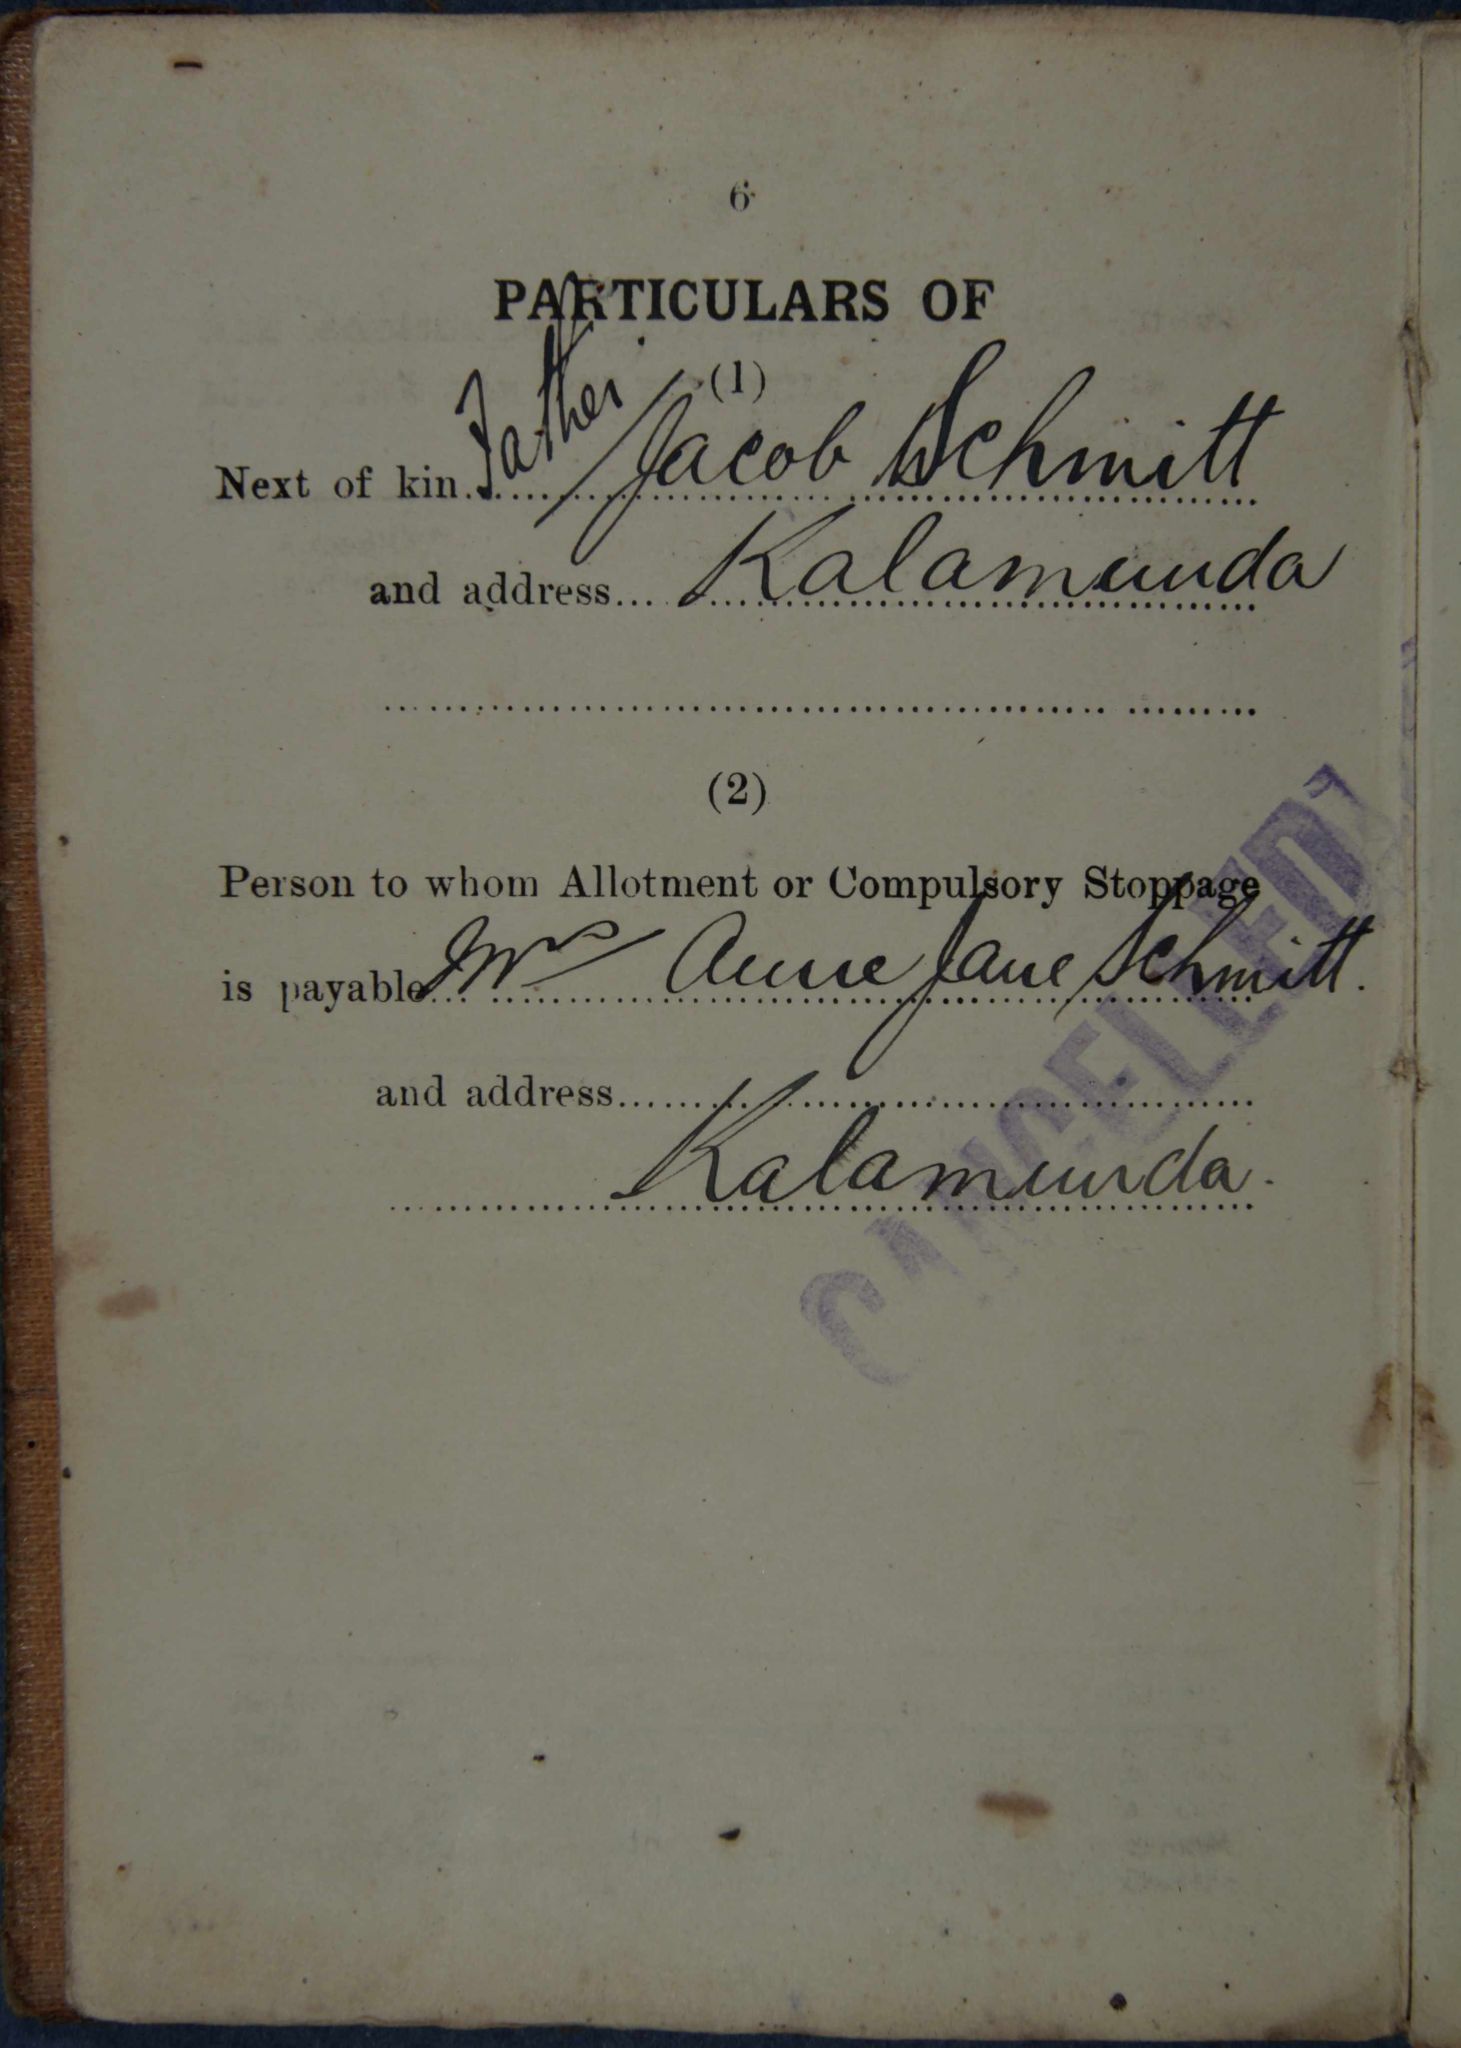 6
PARTICULARS OF
(1)
Next of kin Father / Jacob Schmitt
and address Kalamunda
(2)
Person to whom Allotment or Compulsory Stoppage
is payable Mrs Anne Jane Schmitt.
and address
Kalamunda.
CANCELLED